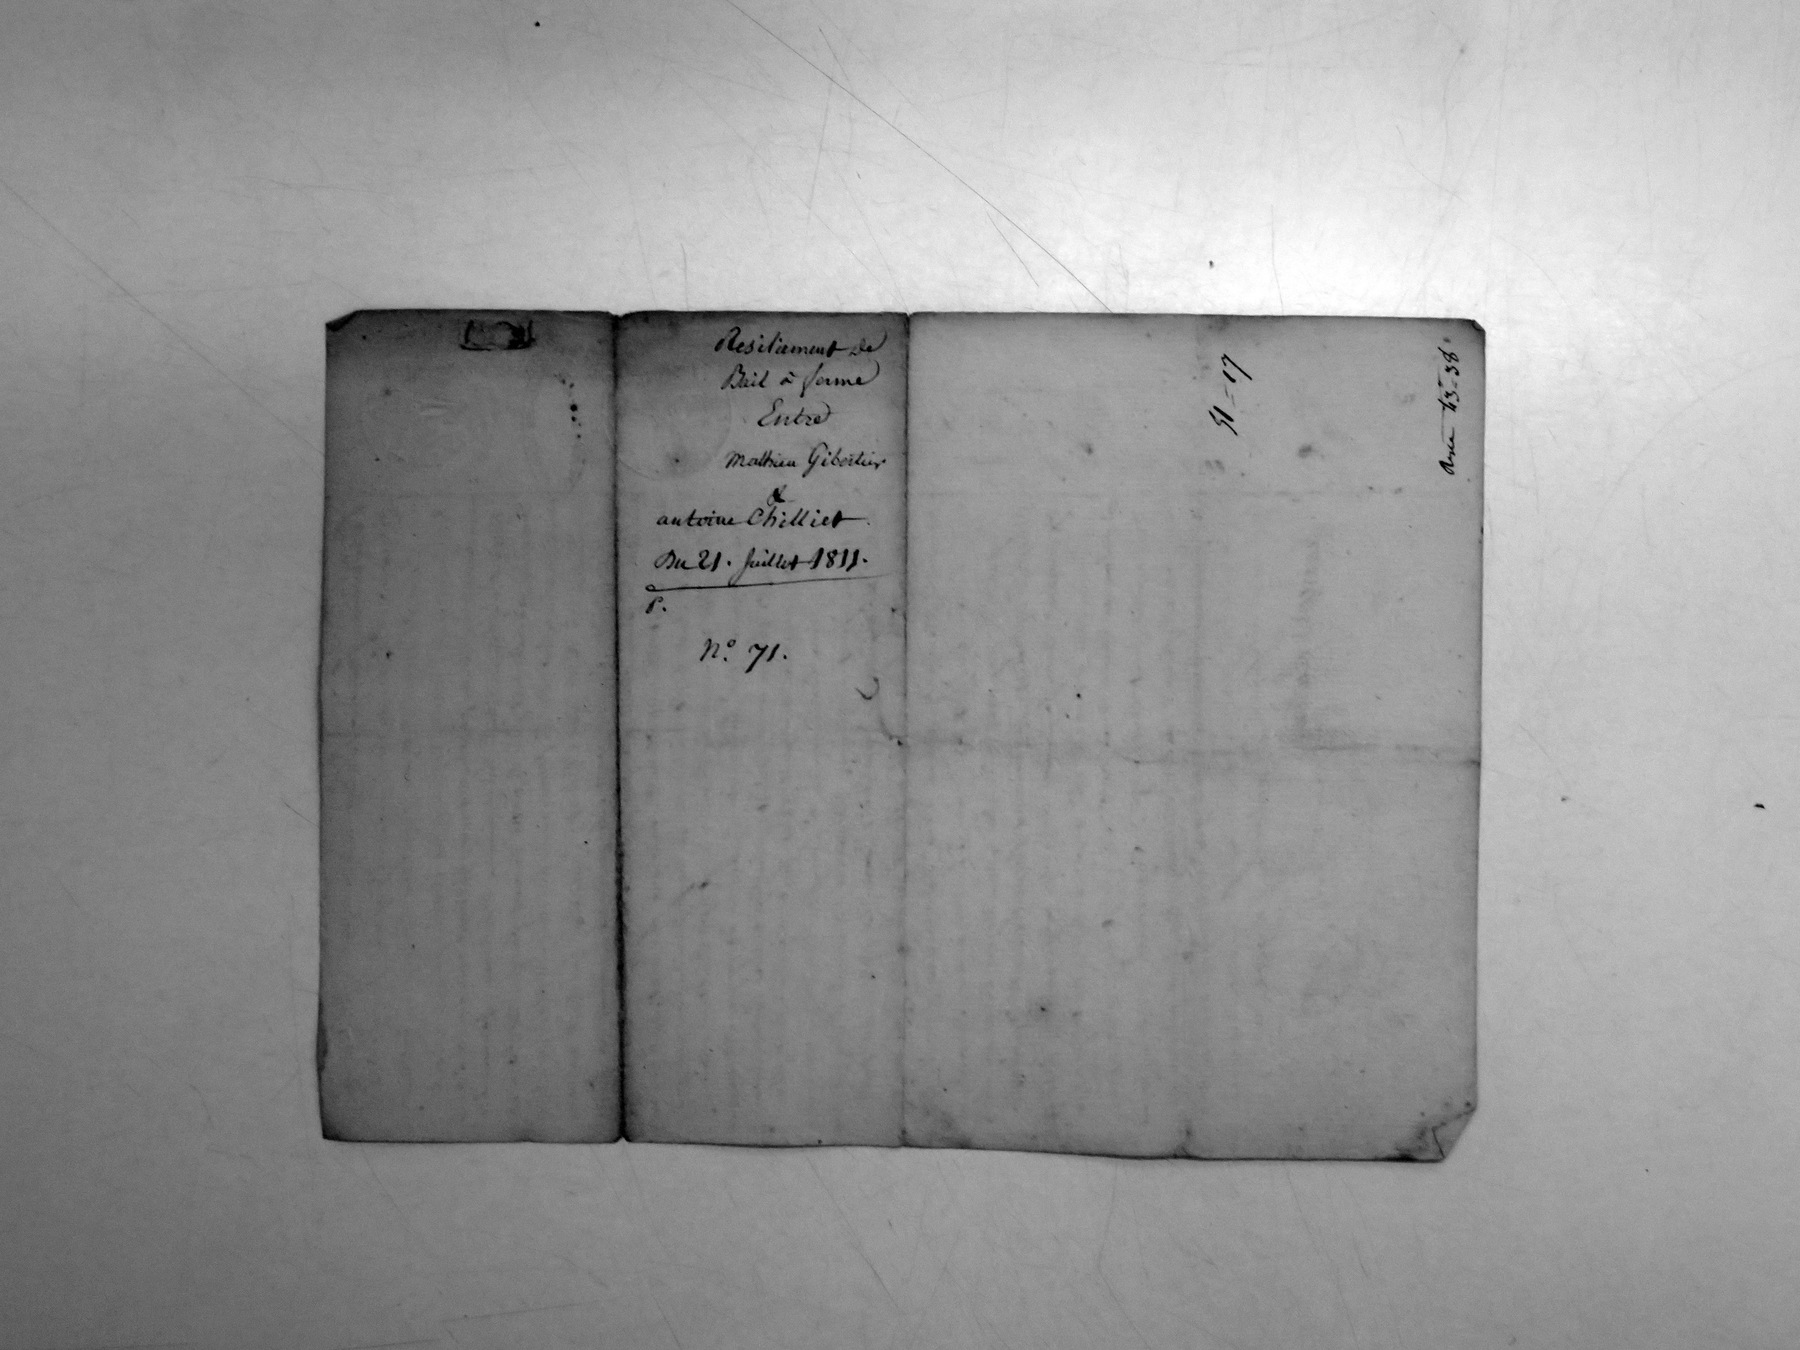 Resiliament de
Bail à ferme
Entre
Mathieu Gibertier
&
antoine Chilliet.
Du 21. Juillet 1811.
P.
N.° 71.
51=17
43=38